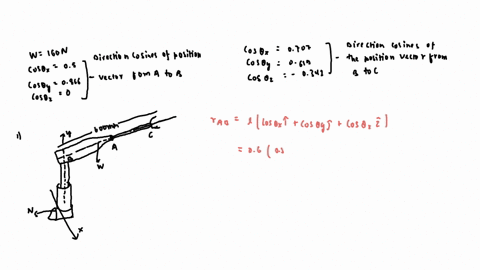 W = 160N
cosθx = 0.5
cosθy = 0.866
cosθz = 0
Direction cosines of position
vector from A to B
cosθx = 0.707
cosθy = 0.619
cosθz = - 0.343
Direction cosines of
the position vector from
B to C
1)
y
600mm
A
C
W
N
x
rAB = l ( cosθx î + cosθy ĵ + cosθz k̂ )
= 0.6 ( 0.5